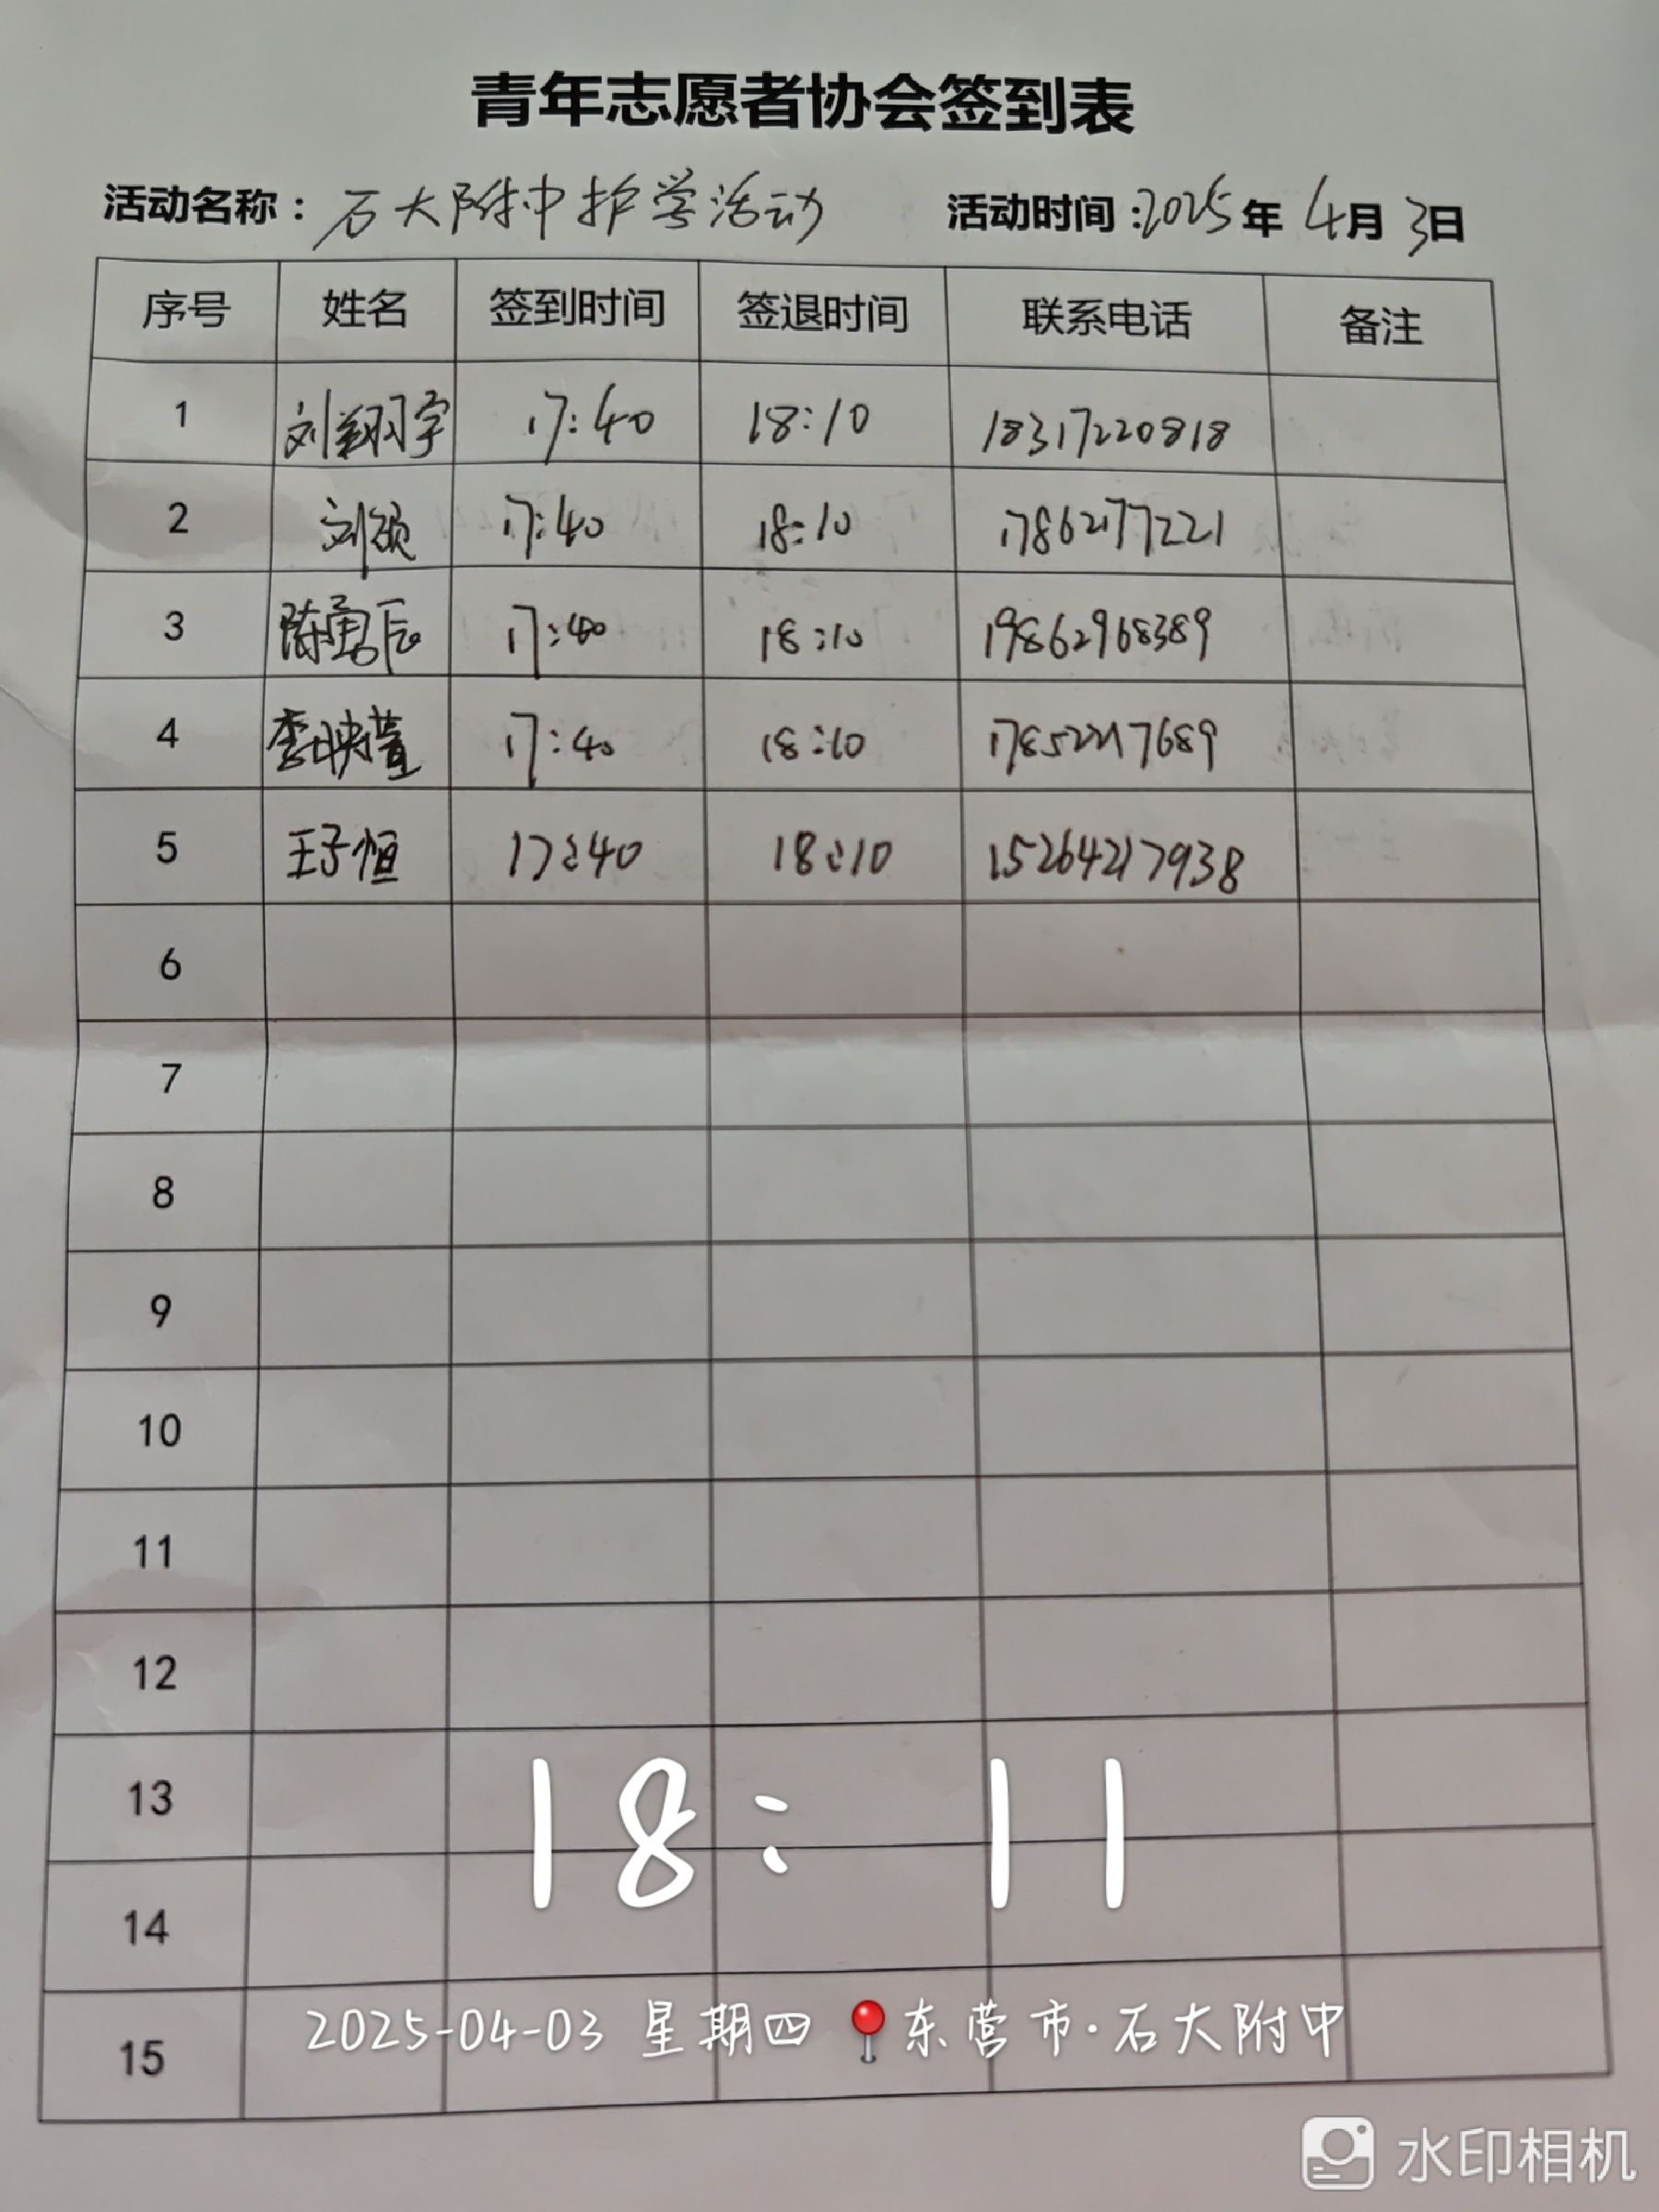 青年志愿者协会签到表
活动名称：石大附中护学活动 活动时间：2025年4月3日
序号 姓名 签到时间 签退时间 联系电话 备注
1 刘翔宇 17:40 18:10 18317220818
2 刘硕 17:40 18:10 17862177221
3 陈勇辰 17:40 18:10 19862968389
4 李映萱 17:40 18:10 17852217689
5 王子恒 17:40 18:10 15264217938
6
7
8
9
10
11
12
13
18:11
14
15
2025-04-03 星期四 东营市·石大附中
水印相机